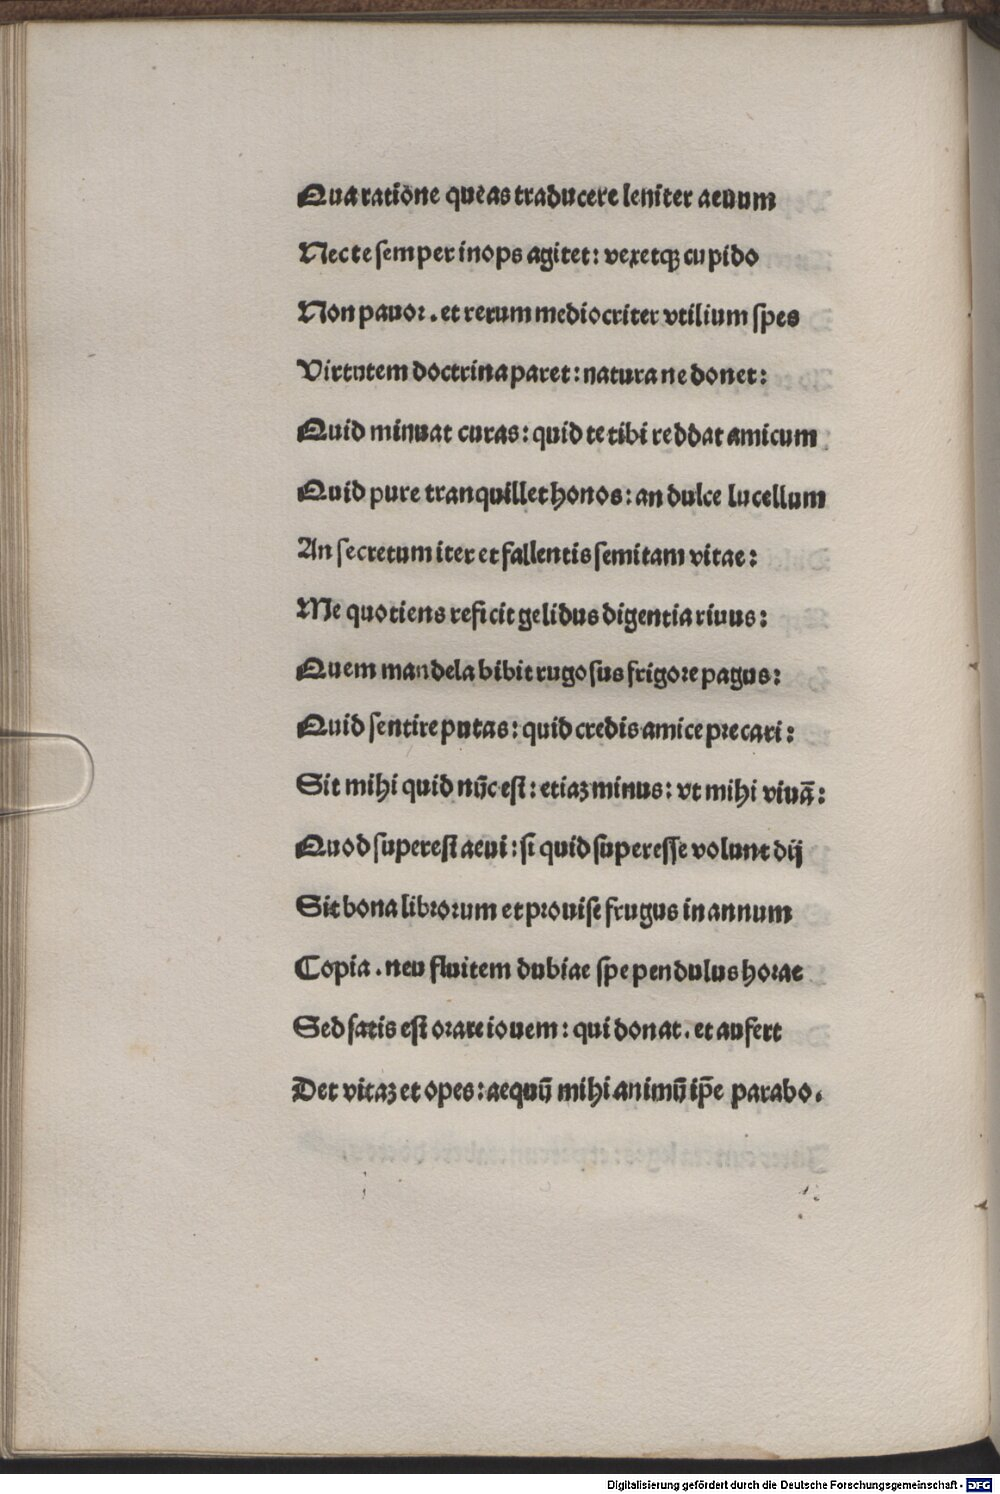 Qua ratione queas traducere leniter aeuum
Nec te semper inops agitet: vexetqꝫ cupido
Non pauor. et rerum mediocriter vtilium spes
Virtutem doctrina paret: natura ne donet:
Quid minuat curas: quid te tibi reddat amicum
Quid pure tranquillet honos: an dulce lucellum
An secretum iter et fallentis semitam vitae:
Me quotiens reficit gelidus digentia riuus:
Quem mandela bibit rugosus frigore pagus:
Quid sentire putas: quid credis amice precari:
Sit mihi quid nūc est: etiaz minus: vt mihi viuā:
Quod superest aeui: si quid superesse volunt dij
Sit bona librorum et prouise frugus in annum
Copia. neu fluitem dubiae spe pendulus horae
Sed satis est orare iouem: qui donat. et aufert
Det vitaz et opes: aequū mihi animū ip̄e parabo.
Digitalisierung gefördert durch die Deutsche Forschungsgemeinschaft - DFG